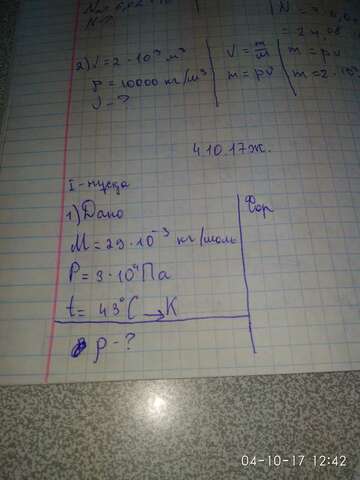 2) V = 2 · 10⁻³ м³
ρ = 10000 кг/м³
ν - ?
ν = m/M
m = ρV
m = ρV
m = 2 · 10
4.10.17ж.
I - нұсқа
1) Дано
M = 29 · 10⁻³ кг/моль
P = 3 · 10⁴ Па
t = 43°C → K
ρ - ?
Фор
04-10-17 12:42